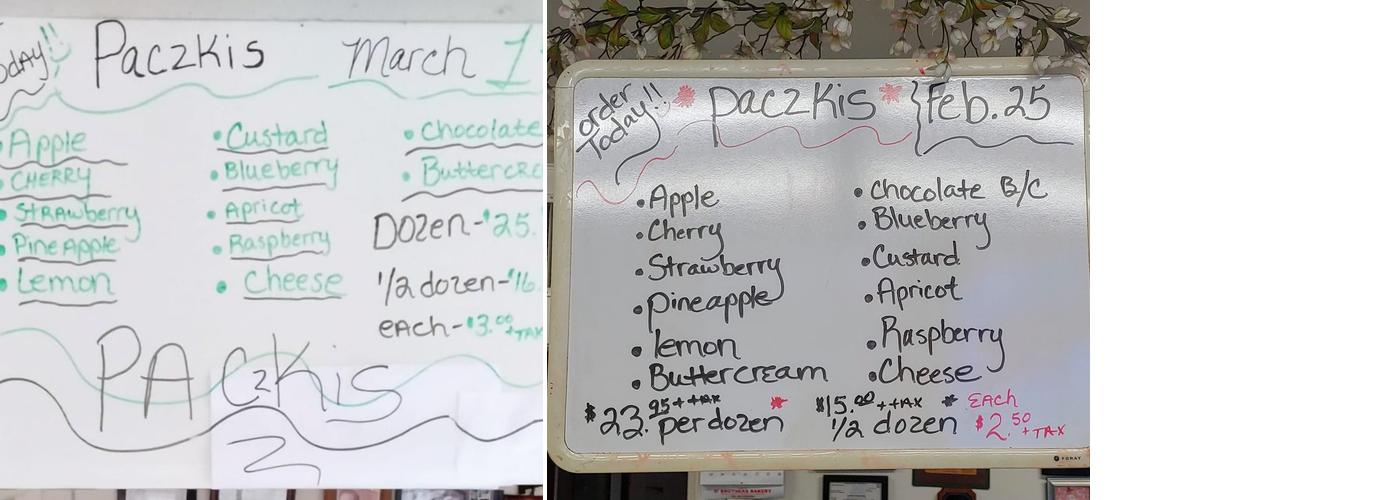 oday!!
Paczkis
March 1
• Apple
• CHERRY
• StRAwberry
• PineApple
• Lemon
• Custard
• Blueberry
• Apricot
• Raspberry
• Cheese
• Chocolate
• Buttercre
DOzen-$25.
1/2 dozen-$16.
eAch-$3.00
+TAX
PAczKis
order
Today!!
paczKis
Feb. 25
• Apple
• Cherry
• Strawberry
• pineapple
• lemon
• Buttercream
• chocolate B/C
• Blueberry
• Custard
• Apricot
• Raspberry
• Cheese
$23.95 + tax
per dozen
$15.00 + tAX
1/2 dozen
EAcH
$2.50
+ TAX
FORAY
BROTHERS BAKERY